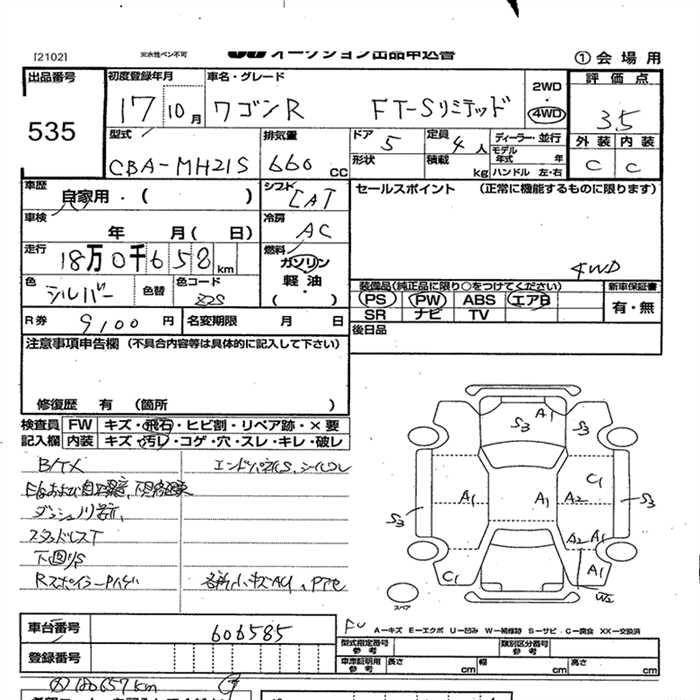 [2102]
※水性ペン不可
オークション出品申込書
① 会場用
出品番号
535
初度登録年月
17 10月
車名・グレード
ワゴンR FT-Sリミテッド
2WD
・
4WD
評価点
3.5
型式
CBA-MH21S
排気量
660 cc
ドア
5
形状
定員
4 人
積載
kg
ディーラー・並行
モデル年式 年
ハンドル 左・右
外装 内装
C C
車歴
自家用・( )
シフト
CAT
セールスポイント (正常に機能するものに限ります)
4WD
車検
年 月( 日)
冷房
AC
走行
18万0千658 km
燃料
ガソリン
軽油
・
( )
色
シルバー
色替
色コード
Z2S
装備品(純正品に限り○をつけてください)
PS PW ABS エアB
SR ナビ TV
新車保証書
有・無
R券
9,100 円
名変期限 月 日
後日品
注意事項申告欄 (不具合内容等は具体的に記入して下さい)
修復歴 有 (箇所 )
検査員 FW キズ・飛石・ヒビ割・リペア跡・×要
記入欄 内装 キズ・汚レ・コゲ・穴・スレ・キレ・破レ
スタッドレスT
下回りS
A1
S3
S3
C1
A1
A1
A2
S3
S3
A2
A1
A1
C1
W2
スペア
A—キズ E—エクボ U—凹み W—補修跡 S—サビ C—腐食 XX—交換済
車台番号
606585
登録番号
型式指定番号
参考
類別区分番号
参考
車庫証明用
参考
長さ cm
幅 cm
高さ cm
180657km